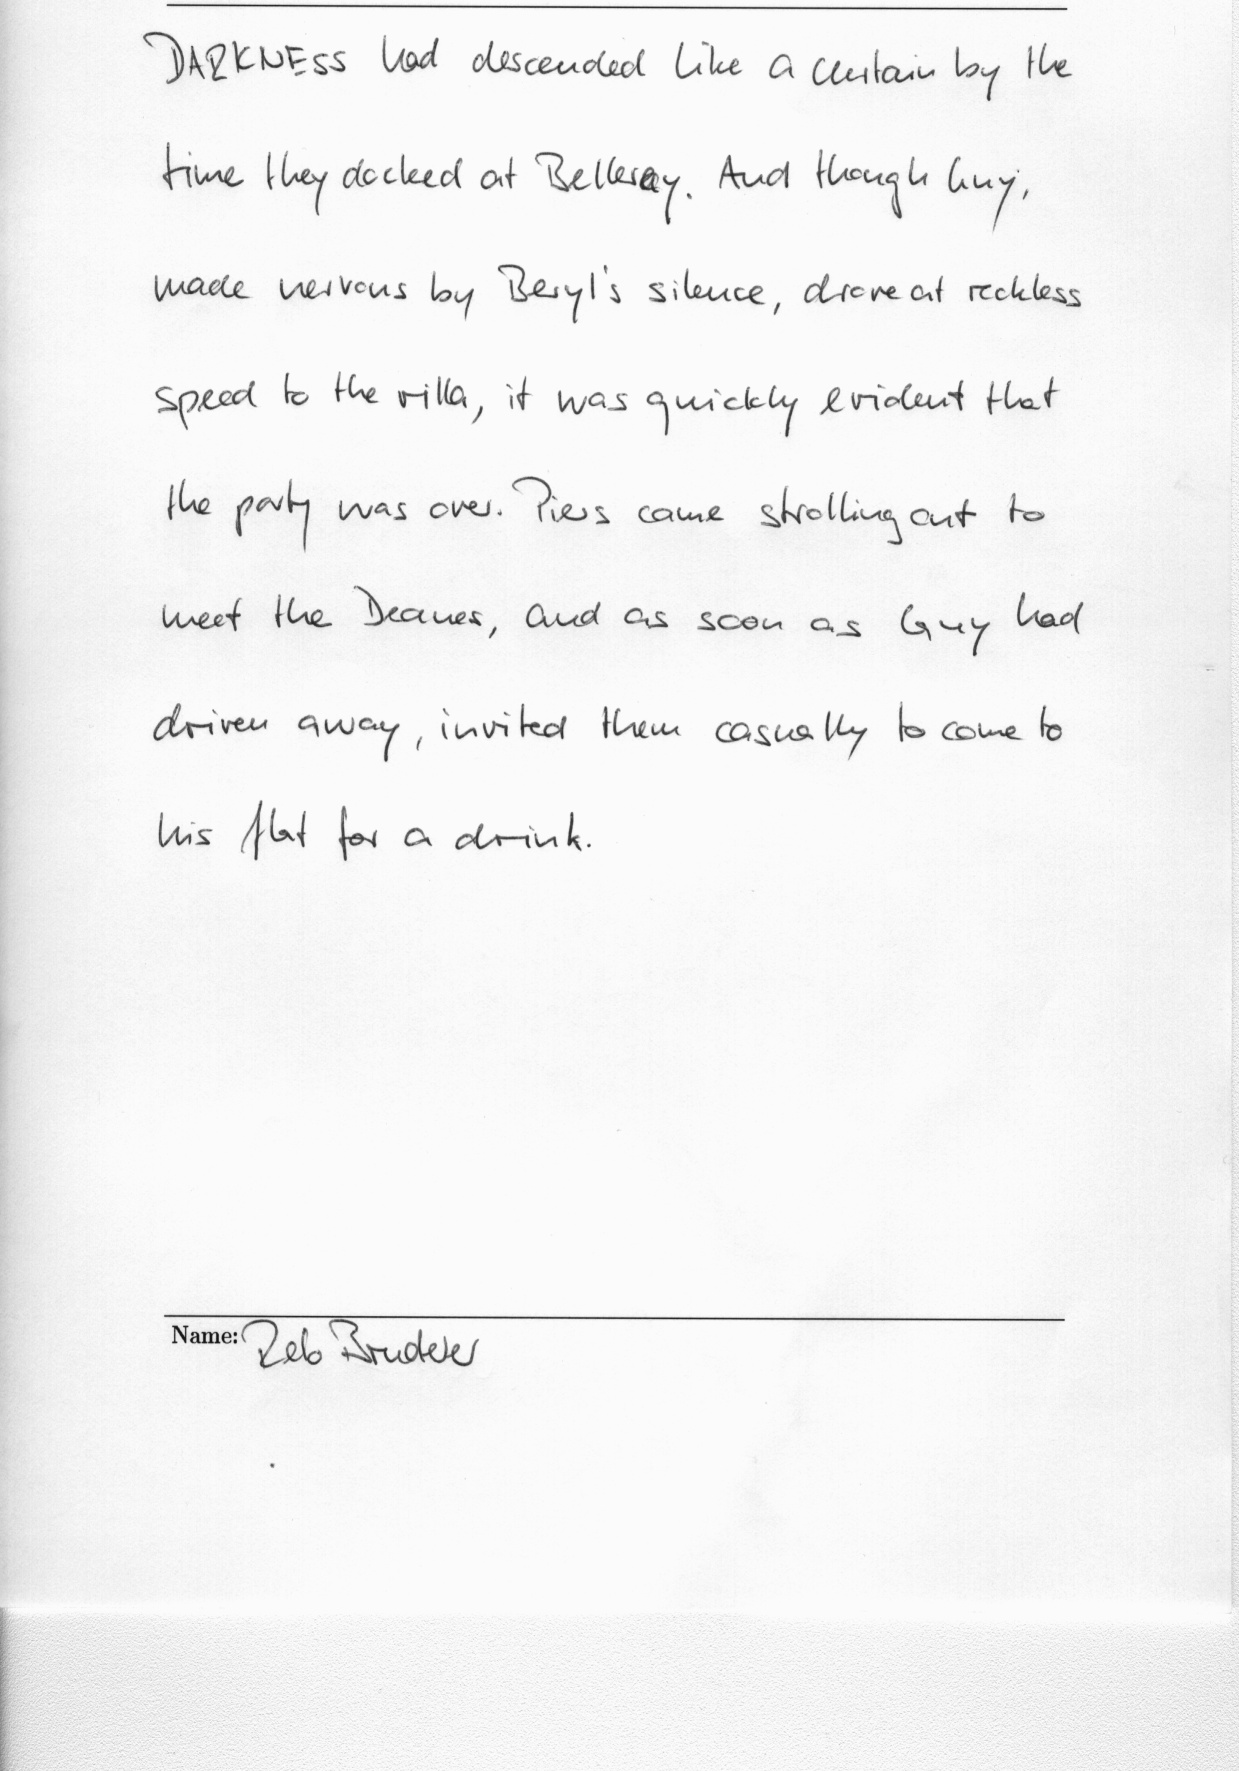 DARKNESS had descended like a curtain by the
time they docked at Belleray. And though Guy,
made nervous by Beryl's silence, drove at reckless
speed to the villa, it was quickly evident that
the party was over. Piers came strolling out to
meet the Deanes, and as soon as Guy had
driven away, invited them casually to come to
his flat for a drink.
Name: Reto Bruderer